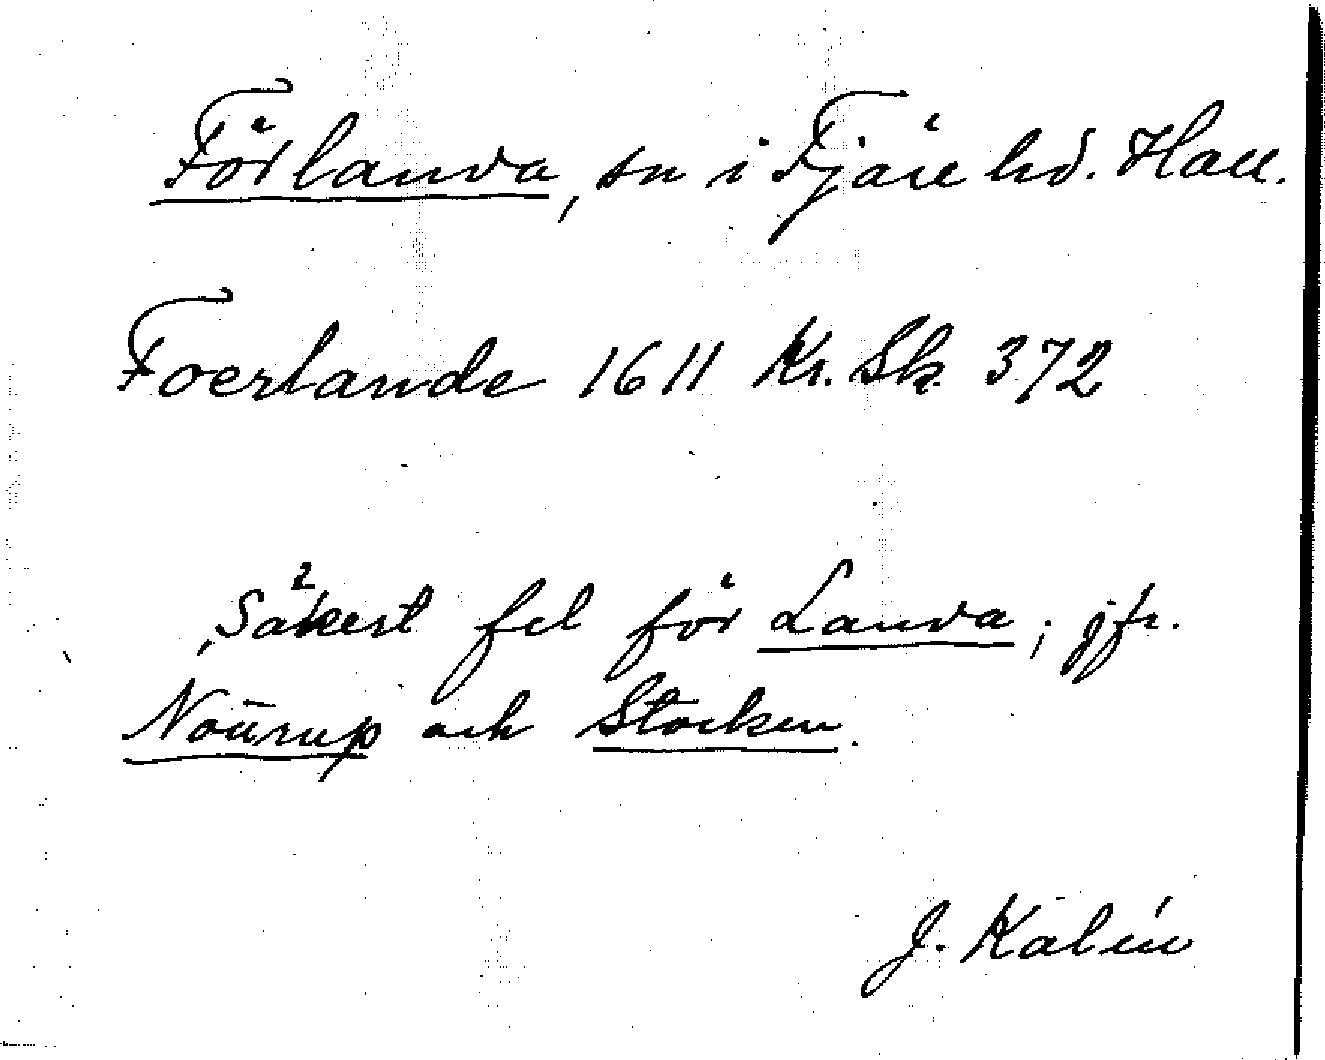 Förlanda, sn i Fjäre hd. Hall.
Foerlande 1611 Kr. Sk. 372
Säkert fel för Landa; jfr.
Nödrup och Stocken.
J. Kalén